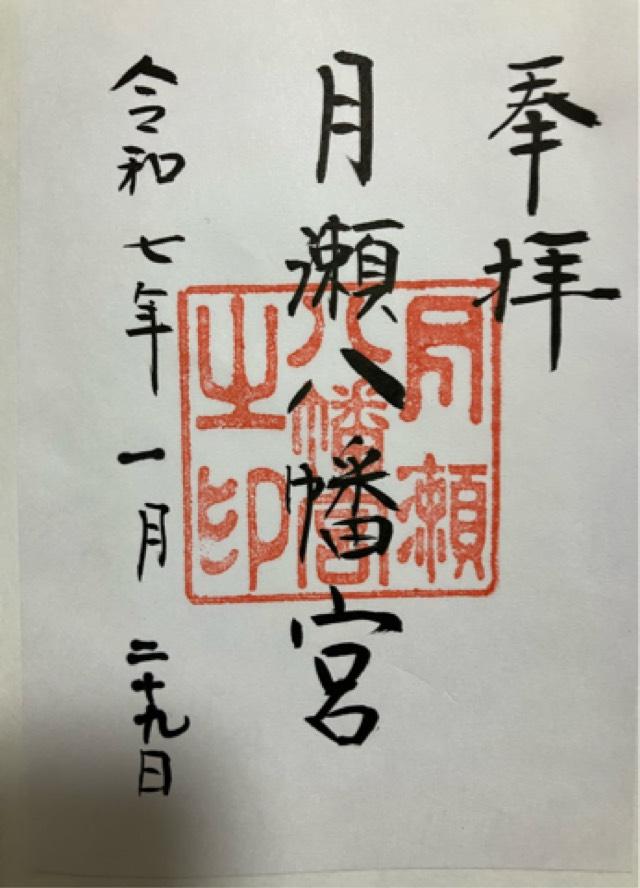 奉拝
月瀬八幡宮
月瀬
八幡宮
之印
令和七年一月二十九日